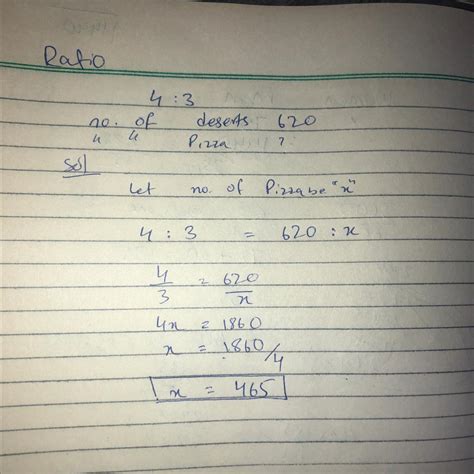 Ratio
4 : 3
no. of deserts 620
" " Pizza ?
Sol
Let no. of Pizza be "x"
4 : 3 = 620 : x
4/3 = 620/x
4x = 1860
x = 1860/4
x = 465